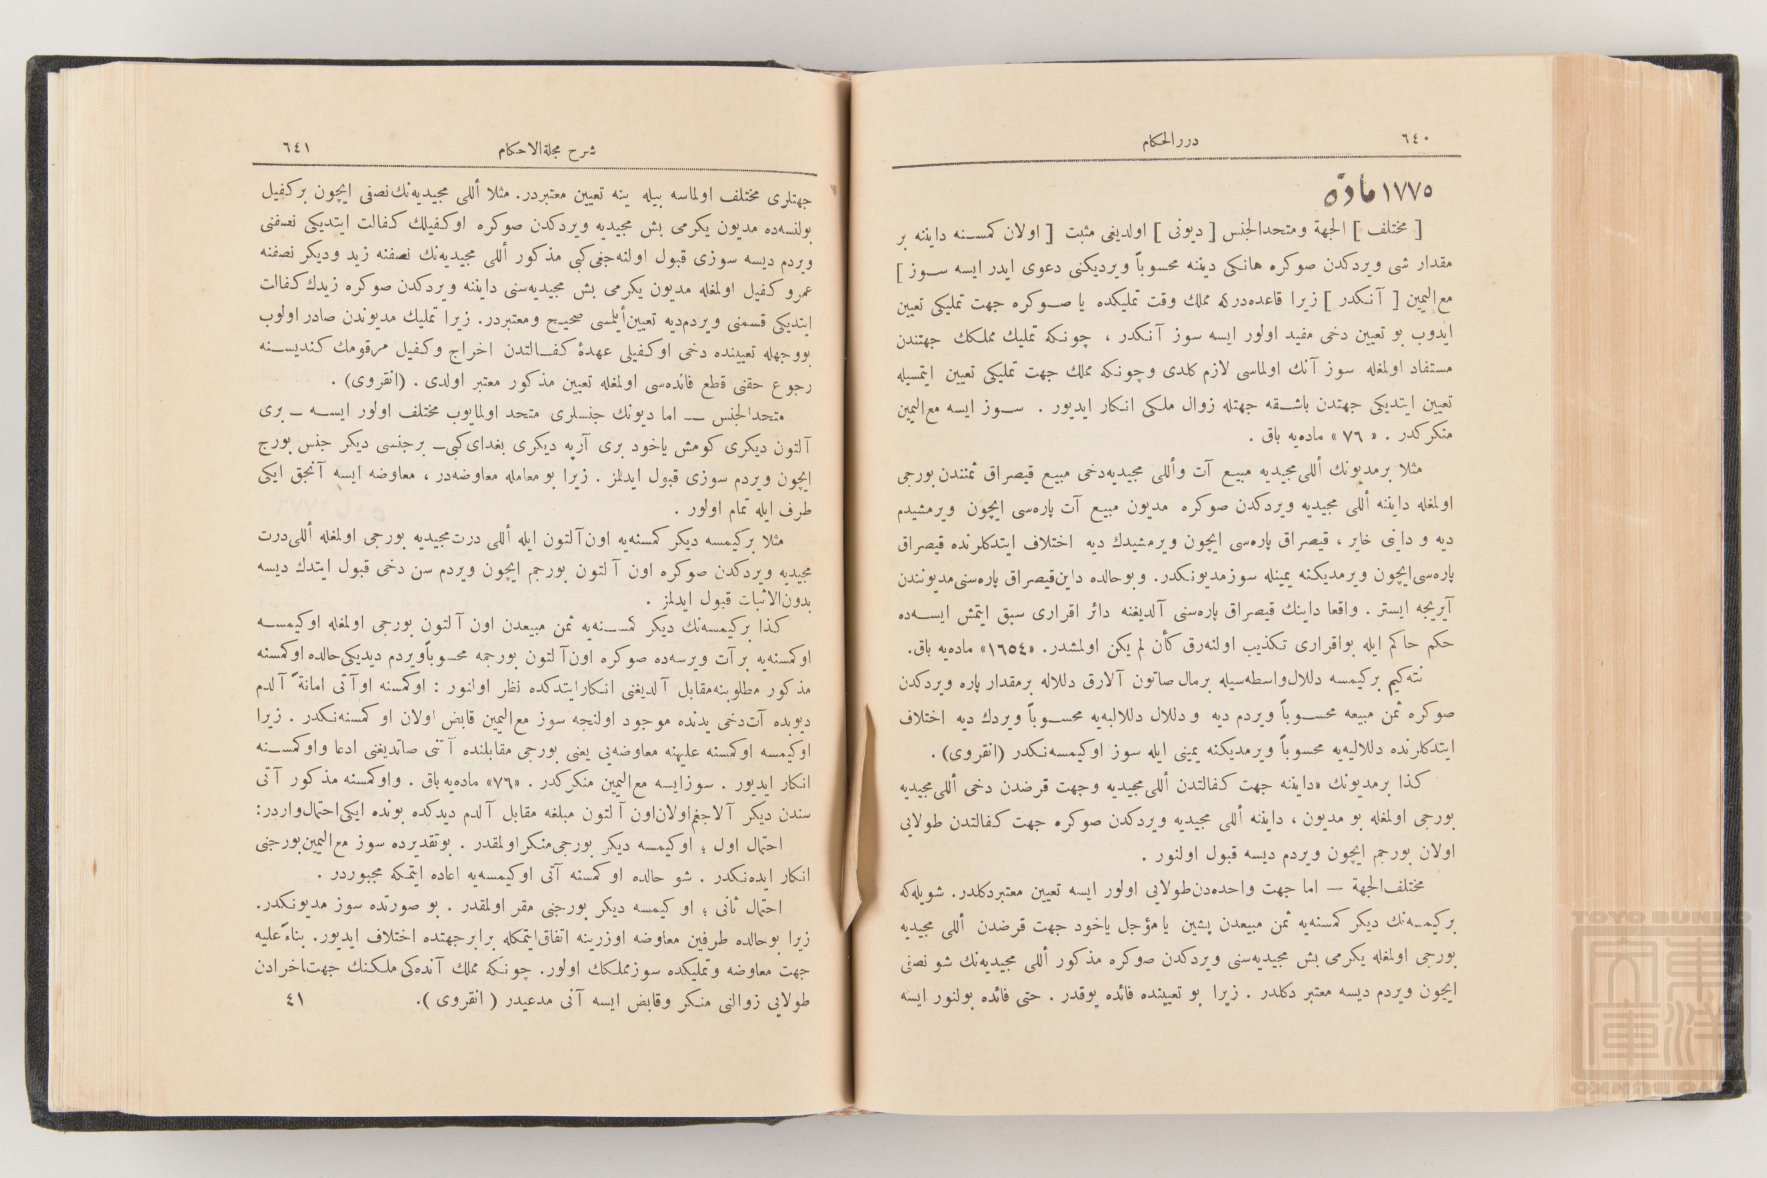 ٦٤٠
دررالحكام
١٧٧٥ مادّه
[ مختلف ] الجهة ومتحدالجنس [ ديونى ] اولديغى مثبت [ اولان كمسـنه داينه بر
مقدار شى ويردكدن صوكره هانكى ديننه محسوباً ويرديكنى دعوى ايدر ايسه سـوز ]
مع اليمين [ آنـكدر ] زيرا قاعده‌دركه مملك وقت تمليكده يا صـوكره جهت تمليكى تعيين
ايدوب بو تعيين دخى مفيد اولور ايسه سوز آنكدر ، چونكه تمليك مملكك جهتندن
مستفاد اولمغله سوز آنك اولماسى لازم كلدى وچونكه مملك جهت تمليكى تعيين ايتمسيله
تعيين ايتديكى جهتدن باشـقه جهتله زوال ملكى انـكار ايديور . سـوز ايسه مع اليمين
منكركدر . « ٧٦ » ماده‌يه باق .
مثلا برمديونك أللى مجيديه مبيع آت وأللى مجيديه‌دخى مبيع قيصراق ثمنندن بورجى
اولمغله داينه أللى مجيديه ويردكدن صوكره مديون مبيع آت پاره‌سى ايچون ويرمشيدم
ديه و داينى خاير ، قيصراق پاره‌سى ايچون ويرمشيدك ديه اختلاف ايتدكلرنده قيصراق
پاره‌سى ايچون ويرمديكنه يمينله سوز مديونكدر. وبوحالده داين قيصراق پاره‌سنى مديونندن
آيريجه ايستر . واقعا داينك قيصراق پاره‌سنى آلديغنه دائر اقرارى سبق ايتمش ايسـه‌ده
حكم حاكم ايله بواقرارى تكذيب اولنه‌رق كأن لم يكن اولمشدر. «١٦٥٤» ماده‌يه باق.
نته‌كيم بركيمسه دللال واسطه‌سيله برمال صاتون آلارق دللاله برمقدار پاره ويردكدن
صوكره ثمن مبيعه محسـوباً ويردم ديه و دللال دللاليه‌يه محسـوباً ويردك ديه اختلاف
ايتدكلرنده دللاليه‌يه محسوباً ويرمديكنه يمينى ايله سوز اوكيمسه‌نكدر (انقروى) .
كذا برمديونك داينه جهت كفالتدن أللى مجيديه وجهت قرضدن دخى أللى مجيديه
بورجى اولمغله بو مديون ، داينه أللى مجيديه ويردكدن صوكره جهت كفالتدن طولايى
اولان بورجم ايچون ويردم ديسه قبول اولنور .
مختلف‌الجهة — اما جهت واحده‌دن طولايى اولور ايسه تعيين معتبردكلدر. شويله‌كه
بركيمسه‌نك ديكر كمسنه‌يه ثمن مبيعدن پشين يا مؤجل ياخود جهت قرضدن أللى مجيديه
بورجى اولمغله يكرمى بش مجيديه‌سنى ويردكدن صوكره مذكور أللى مجيديه‌نك شو نصفى
ايچون ويردم ديسه معتبر دكلدر . زيرا بو تعيينده فائده يوقدر . حتى فائده بولنور ايسه
٦٤١
شرح مجلة‌الاحكام
جهتلرى مختلف اولماسه بيله ينه تعيين معتبردر. مثلا أللى مجيديه‌نك نصفى ايچون بركفيل
بولنسه‌ده مديون يكرمى بش مجيديه ويردكدن صوكره اوكفيلك كفالت ايتديكى نصفنى
ويردم ديسه سوزى قبول اولنه‌جغى كبى مذكور أللى مجيديه‌نك نصفنه زيد وديكر نصفنه
عمرو كفيل اولمغله مديون يكرمى بش مجيديه‌سنى داينه ويردكدن صوكره زيدك كفالت
ايتديكى قسمنى ويردم ديه تعيين أيلمسى صحيح ومعتبردر. زيرا تمليك مديوندن صادر اولوب
بووجهله تعيينده دخى اوكفيلى عهدۀ كفـالتدن اخراج وكفيل مرقومك كنديسـنه
رجوع حقنى قطع فائده‌سى اولمغله تعيين مذكور معتبر اولدى . (انقروى) .
متحدالجنس — اما ديونك جنسلرى متحد اولمايوب مختلف اولور ايسـه — برى
آلتون ديكرى كومش ياخود برى آرپه ديكرى بغداى كبى— برجنسى ديكر جنس بورج
ايچون ويردم سوزى قبول ايدلمز . زيرا بو معامله معاوضه‌در ، معاوضه ايسه آنجق ايكى
طرف ايله تمام اولور .
مثلا بركيمسه ديكر كمسنه‌يه اون آلتون ايله أللى درت مجيديه بورجى اولمغله أللى درت
مجيديه ويردكدن صوكره اون آلتون بورجم ايچون ويردم سن دخى قبول ايتدك ديسه
بدون‌الاثبات قبول ايدلمز .
كذا بركيمسه‌نك ديكر كمسـنه‌يه ثمن مبيعدن اون آلتون بورجى اولمغله اوكيمسـه
اوكمسنه‌يه برآت ويرسه‌ده صوكره اون آلتون بورجمه محسوباً ويردم ديديكى حالده اوكمسنه
مذكور مطلوبنه مقابل آلديغنى انكار ايتدكده نظر اولنور : اوكمسنه اوآتى امانةً آلدم
ديوبده آت دخى يدنده موجود اولنجه سوز مع‌اليمين قابض اولان اوكمسنه‌نكدر . زيرا
اوكيمسه اوكمسنه عليهنه معاوضه‌يى يعنى بورجى مقابلنده آتنى صاتديغنى ادعا واوكمسـنه
انكار ايديور . سوزايسه مع‌اليمين منكركدر . «٧٦» ماده‌يه باق . واوكمسنه مذكور آتى
سندن ديكر آلاجغم اولان اون آلتون مبلغه مقابل آلدم ديدكده بونده ايكى احتمال واردر:
احتمال اول ؛ اوكيمسه ديكر بورجى منكر اولمقدر . بوتقديرده سوز مع‌اليمين بورجنى
انكار ايده‌نكدر . شو حالده اوكمسنه آتى اوكيمسه‌يه اعاده ايتمكه مجبوردر .
احتمال ثانى ؛ او كيمسه ديكر بورجنى مقر اولمقدر . بو صورتده سوز مديونكدر.
زيرا بوحالده طرفين معاوضه اوزرينه اتفاق ايتمكله برابر جهتده اختلاف ايديور. بناءً عليه
جهت معاوضه وتمليكده سوز مملكك اولور. چونكه مملك آنده‌كى ملكنك جهت اخرادن
طولايى زوالنى منكر وقابض ايسه آنى مدعيدر ( انقروى ).
٤١
TOYO BUNKO
東洋文庫
TOYO BUNKO